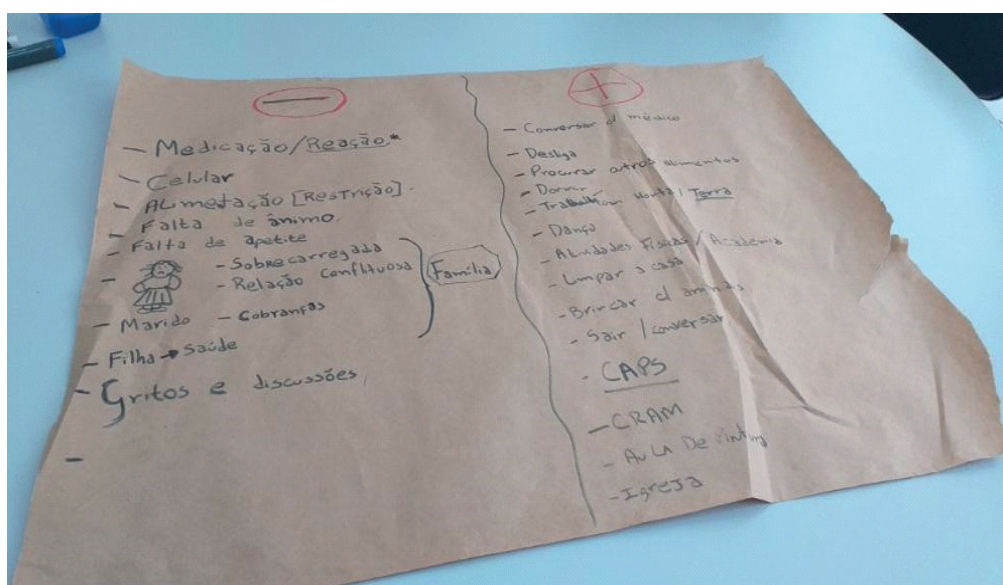 —
- Medicação/Reação*
- Celular
- Alimetação [Restrição].
- Falta de ânimo.
- Falta de apetite
- - Sobrecarregada
- Relação conflituosa
Família
- Marido - Cobranças
- Filha → Saúde
- Gritos e discussões
-
+
- Conversar c/ médico
- Desliga
- Procurar outros alimentos
- Dormir
- Terra
- Dança
- Atividades Físicas / Academia
- Limpar a casa
- Brincar c/ animais
- Sair / conversar
- CAPS
- CRAM
- AULA De Pintura
- Igreja